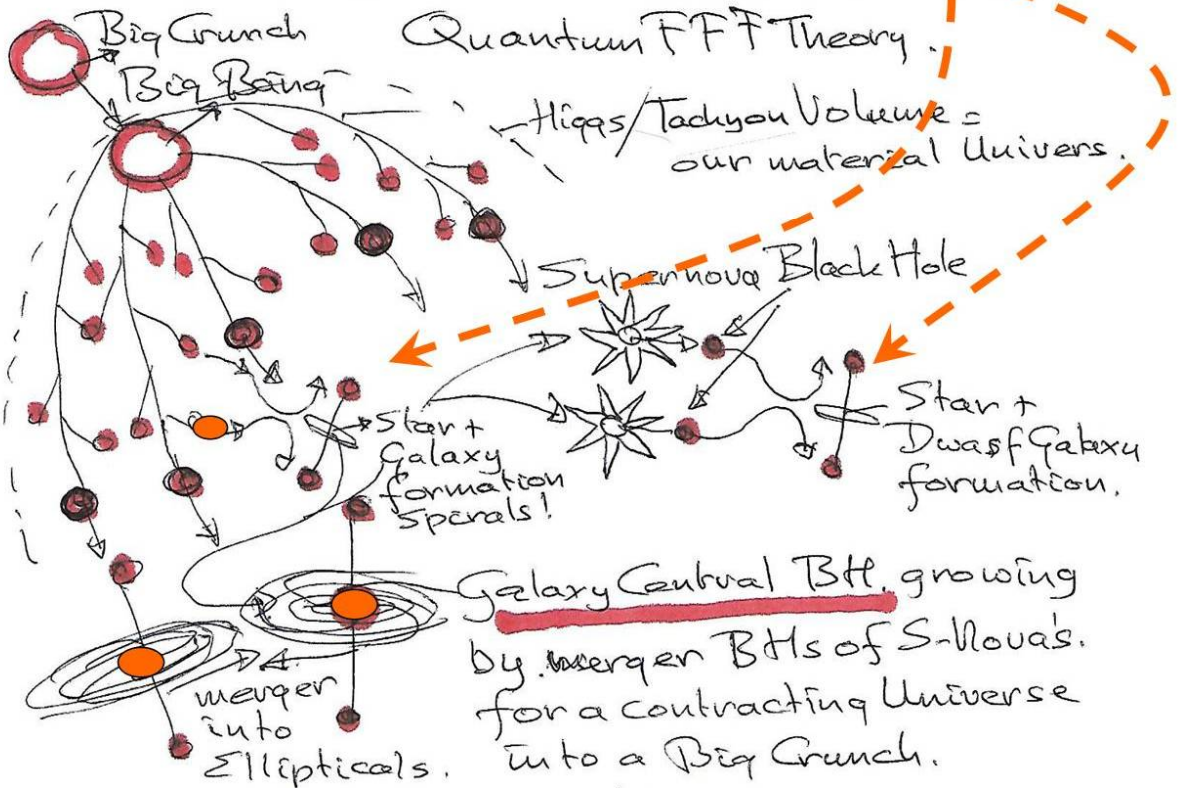 Big Crunch
Quantum FFF Theory.
Big Bang
Higgs/Tachyon Volume =
our material Univers.
Supernova Black Hole
Star +
Galaxy
formation
Spirals!
Star +
Dwasf Galaxy
formation.
Galaxy Central BH, growing
by merger BHs of S-Nova's.
for a contracting Universe
into a Big Crunch.
merger
into
Ellipticals.